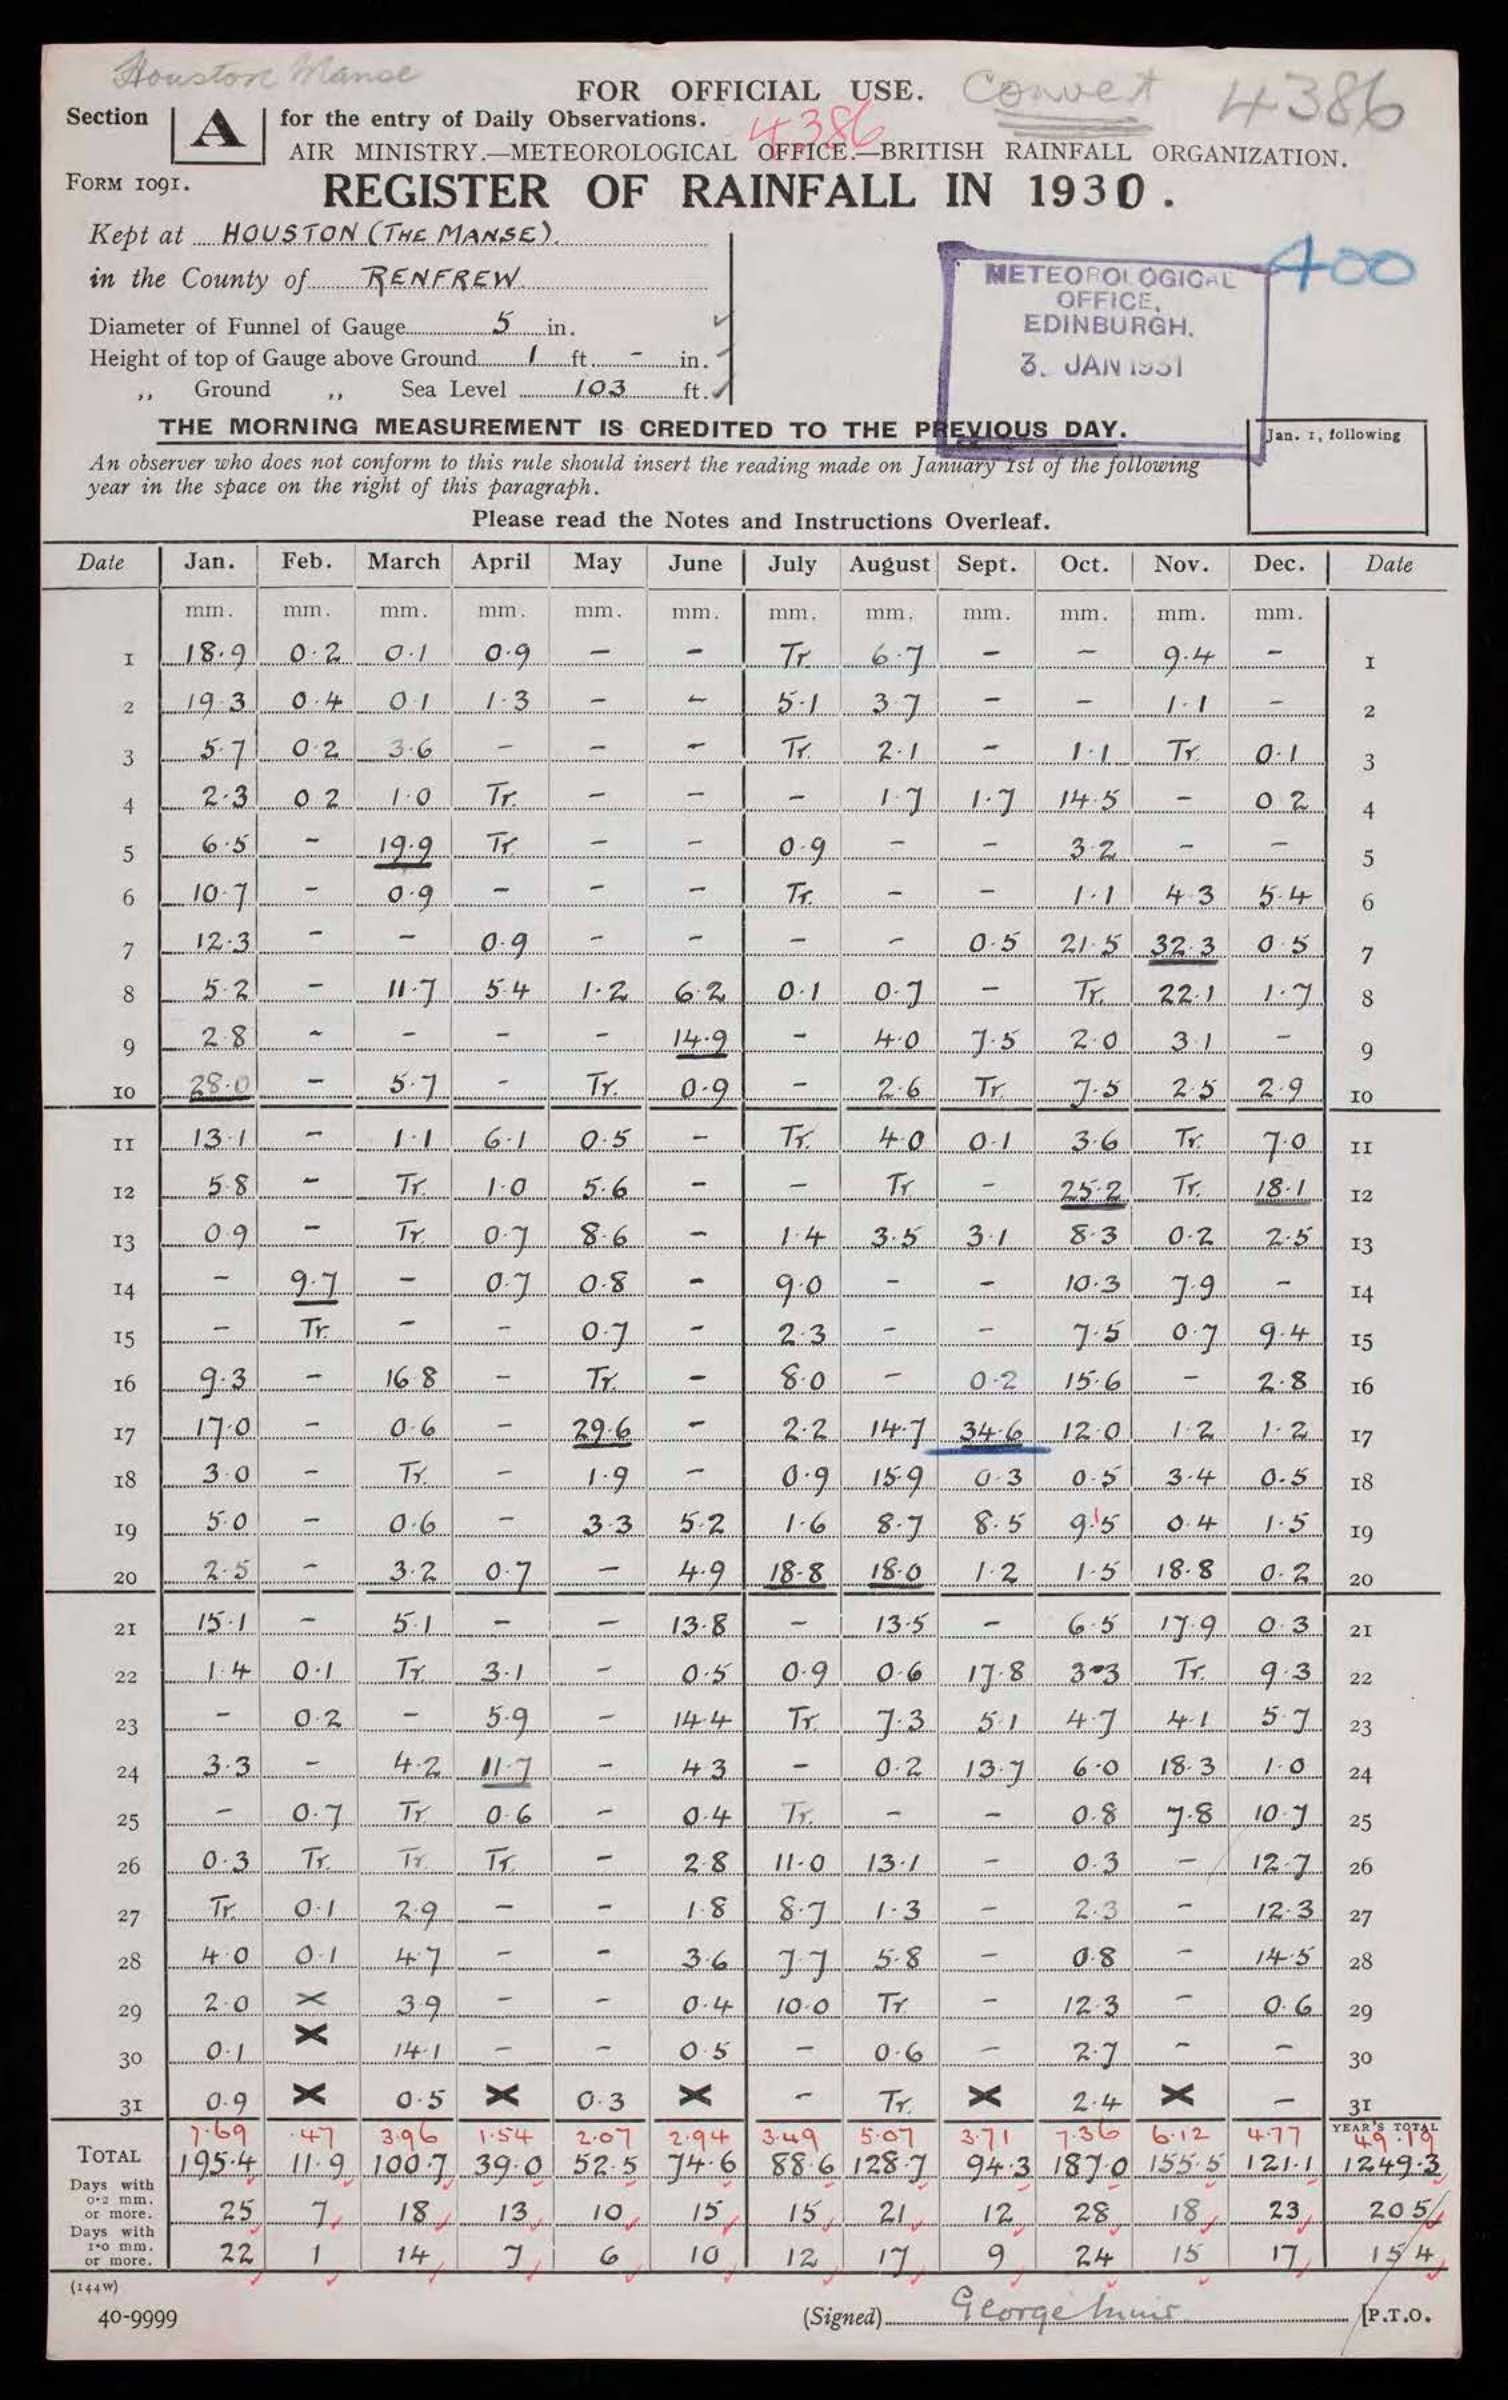 Houston Manse
FOR OFFICIAL USE. Convert 4386
Section A for the entry of Daily Observations. 4386
AIR MINISTRY.—METEOROLOGICAL OFFICE.—BRITISH RAINFALL ORGANIZATION.
FORM 1091. REGISTER OF RAINFALL IN 1930.
Kept at HOUSTON (THE MANSE).
in the County of RENFREW
400
METEOROLOGICAL
OFFICE,
EDINBURGH.
3. JAN 1931
Diameter of Funnel of Gauge 5 in.
Height of top of Gauge above Ground 1 ft. - in.
,, Ground ,, Sea Level 103 ft.
THE MORNING MEASUREMENT IS CREDITED TO THE PREVIOUS DAY.
Jan. 1, following
An observer who does not conform to this rule should insert the reading made on January 1st of the following
year in the space on the right of this paragraph.
Please read the Notes and Instructions Overleaf.
Date Jan. Feb. March April May June July August Sept. Oct. Nov. Dec. Date
mm. mm. mm. mm. mm. mm. mm. mm. mm. mm. mm. mm.
1 18.9 0.2 0.1 0.9 - - Tr. 6.7 - - 9.4 - 1
2 19.3 0.4 0.1 1.3 - - 5.1 3.7 - - 1.1 - 2
3 5.7 0.2 3.6 - - - Tr. 2.1 - 1.1 Tr. 0.1 3
4 2.3 0.2 1.0 Tr. - - - 1.7 1.7 14.5 - 0.2 4
5 6.5 - 19.9 Tr. - - 0.9 - - 3.2 - - 5
6 10.7 - 0.9 - - - Tr. - - 1.1 4.3 5.4 6
7 12.3 - - 0.9 - - - - 0.5 21.5 32.3 0.5 7
8 5.2 - 11.7 5.4 1.2 6.2 0.1 0.7 - Tr. 22.1 1.7 8
9 2.8 - - - - 14.9 - 4.0 7.5 2.0 3.1 - 9
10 28.0 - 5.7 - Tr. 0.9 - 2.6 Tr. 7.5 2.5 2.9 10
11 13.1 - 1.1 6.1 0.5 - Tr. 4.0 0.1 3.6 Tr. 7.0 11
12 5.8 - Tr. 1.0 5.6 - - Tr - 25.2 Tr. 18.1 12
13 0.9 - Tr. 0.7 8.6 - 1.4 3.5 3.1 8.3 0.2 2.5 13
14 - 9.7 - 0.7 0.8 - 9.0 - - 10.3 7.9 - 14
15 - Tr. - - 0.7 - 2.3 - - 7.5 0.7 9.4 15
16 9.3 - 16.8 - Tr. - 8.0 - 0.2 15.6 - 2.8 16
17 17.0 - 0.6 - 29.6 - 2.2 14.7 34.6 12.0 1.2 1.2 17
18 3.0 - Tr. - 1.9 - 0.9 15.9 0.3 0.5 3.4 0.5 18
19 5.0 - 0.6 - 3.3 5.2 1.6 8.7 8.5 9.5 0.4 1.5 19
20 2.5 - 3.2 0.7 - 4.9 18.8 18.0 1.2 1.5 18.8 0.2 20
21 15.1 - 5.1 - - 13.8 - 13.5 - 6.5 17.9 0.3 21
22 1.4 0.1 Tr. 3.1 - 0.5 0.9 0.6 17.8 3.3 Tr. 9.3 22
23 - 0.2 - 5.9 - 14.4 Tr. 7.3 5.1 4.7 4.1 5.7 23
24 3.3 - 4.2 11.7 - 4.3 - 0.2 13.7 6.0 18.3 1.0 24
25 - 0.7 Tr. 0.6 - 0.4 Tr. - - 0.8 7.8 10.7 25
26 0.3 Tr. Tr. Tr. - 2.8 11.0 13.1 - 0.3 - 12.7 26
27 Tr. 0.1 2.9 - - 1.8 8.7 1.3 - 2.3 - 12.3 27
28 4.0 0.1 4.7 - - 3.6 7.7 5.8 - 0.8 - 14.5 28
29 2.0 × 3.9 - - 0.4 10.0 Tr. - 12.3 - 0.6 29
30 0.1 × 14.1 - - 0.5 - 0.6 - 2.7 - - 30
31 0.9 × 0.5 × 0.3 × - Tr. × 2.4 × - 31
7.69 .47 3.96 1.54 2.07 2.94 3.49 5.07 3.71 7.36 6.12 4.77 YEAR'S TOTAL 49.19
TOTAL 195.4 11.9 100.7 39.0 52.5 74.6 88.6 128.7 94.3 187.0 155.5 121.1 1249.3
Days with 0·2 mm. or more. 25 7 18 13 10 15 15 21 12 28 18 23 205
Days with 1·0 mm. or more. 22 1 14 7 6 10 12 17 9 24 15 17 154
(144W)
40-9999 (Signed) George Muir [P.T.O.